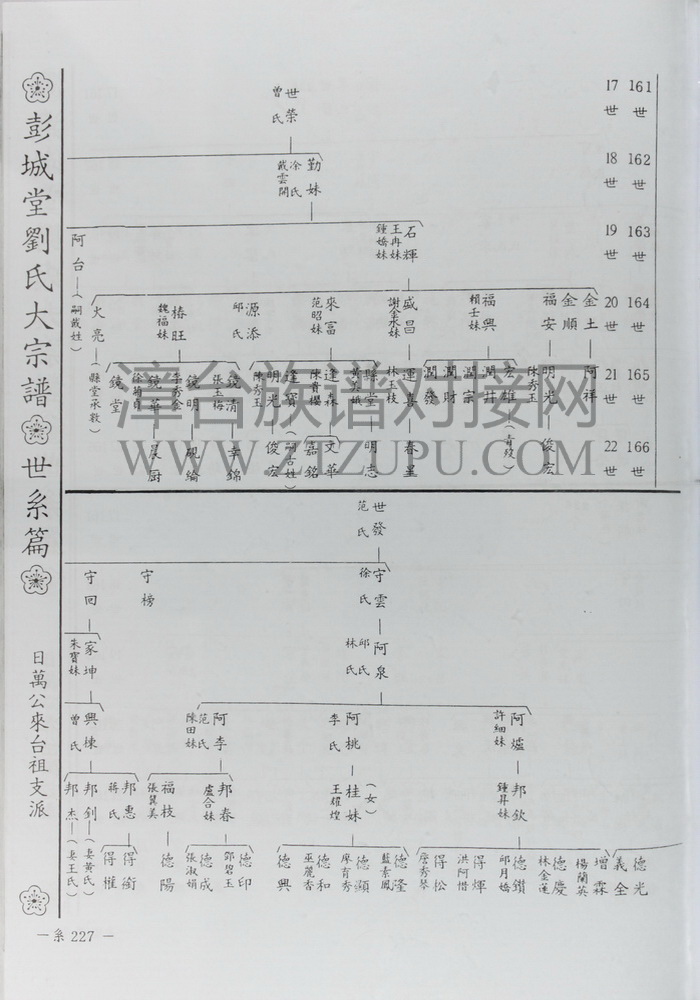 彭城堂劉氏大宗譜 世系篇 日萬公來台祖支派
161 17
世 世
162 18
世 世
163 19
世 世
164 20
世 世
165 21
世 世
166 22
世 世
世榮
曾氏
勤妹
涂氏
戴雲開
石輝
王冉妹
鍾嬌妹
阿台
(嗣戴姓)
金土
金順
福安
福興
賴壬妹
盛昌
謝金承妹
來富
范昭妹
源添
邱氏
椿旺
魏福妹
火亮
(縣堂承毅)
阿祥
明光
陳秀玉
宏雄
(青歿)
潤井
潤宗
潤財
潤發
運喜
林枝
縣堂
黃英娥
逢森
陳貴櫻
逢寶
(嗣古姓)
明光
陳秀玉
鏡清
張玉梅
鏡明
李秀金
鏡華
徐菊貞
鏡堂
俊宏
春星
明志
文華
嘉銘
俊宏
幸錦
硯綸
晨厨
世發
范氏
守雲
徐氏
守榜
守回
阿泉
邱氏
林氏
家坤
朱寶妹
阿爐
許細妹
阿桃
李氏
阿李
范氏
陳田妹
興棟
曾氏
邦欽
鍾昇妹
(女)
桂妹
王耀煌
邦春
盧合妹
福枝
張冀美
邦惠
蔣氏
邦釗
(妻黃氏)
邦杰
(妻王氏)
德光
義全
增霖
楊蘭英
德慶
林金蓮
德鑽
邱月嬌
得煇
洪阿惜
得松
詹秀琴
德隆
藍素鳳
德顯
廖育秀
德和
巫麗香
德興
德印
鄧碧玉
德成
張淑娟
德陽
得銜
得權
—系 227 —
漳台族谱对接网
WWW.ZTZUPU.COM